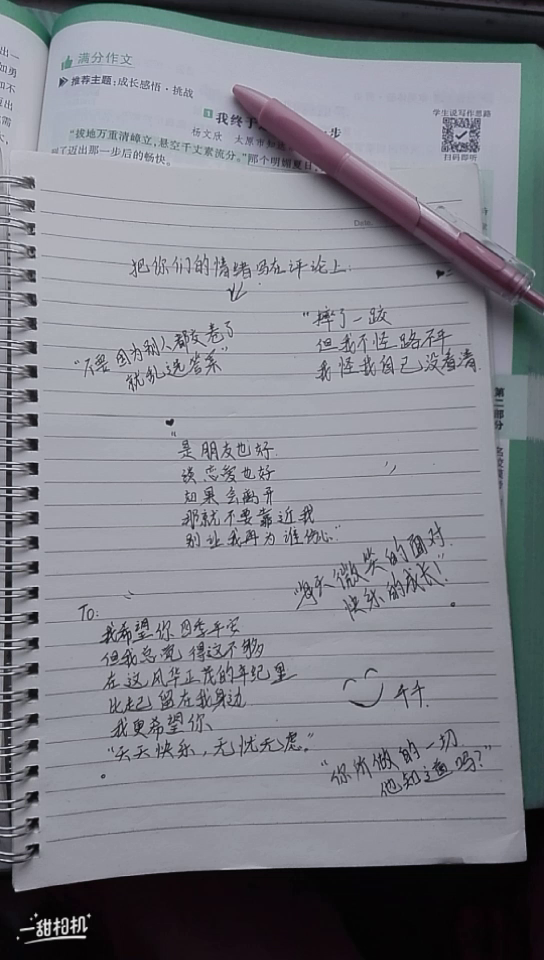 满分作文
推荐主题:成长感悟·挑战
1 我终于
步
杨文欣 太原市知
"拔地万重清嶂立,悬空千丈素流分。"那个明媚夏日,
了迈出那一步后的畅快。
学生说写作思路
扫码即听
第二部分
Date.
把你们的情绪写在评论上:
"不要因为别人都交卷了
就乱选答案"
"摔了一跤
但我不怪路不平
我怪我自己没看清
"是朋友也好
谈恋爱也好
如果会离开
那就不要靠近我
别让我再为谁伤心"
"每天微笑的面对
快乐的成长!"
To:
我希望你四季平安
但我总觉得这不够
在这风华正茂的年纪里
比起留在我身边
我更希望你
"天天快乐,无忧无虑。"
千千
"你所做的一切
他知道吗?"
一甜相机